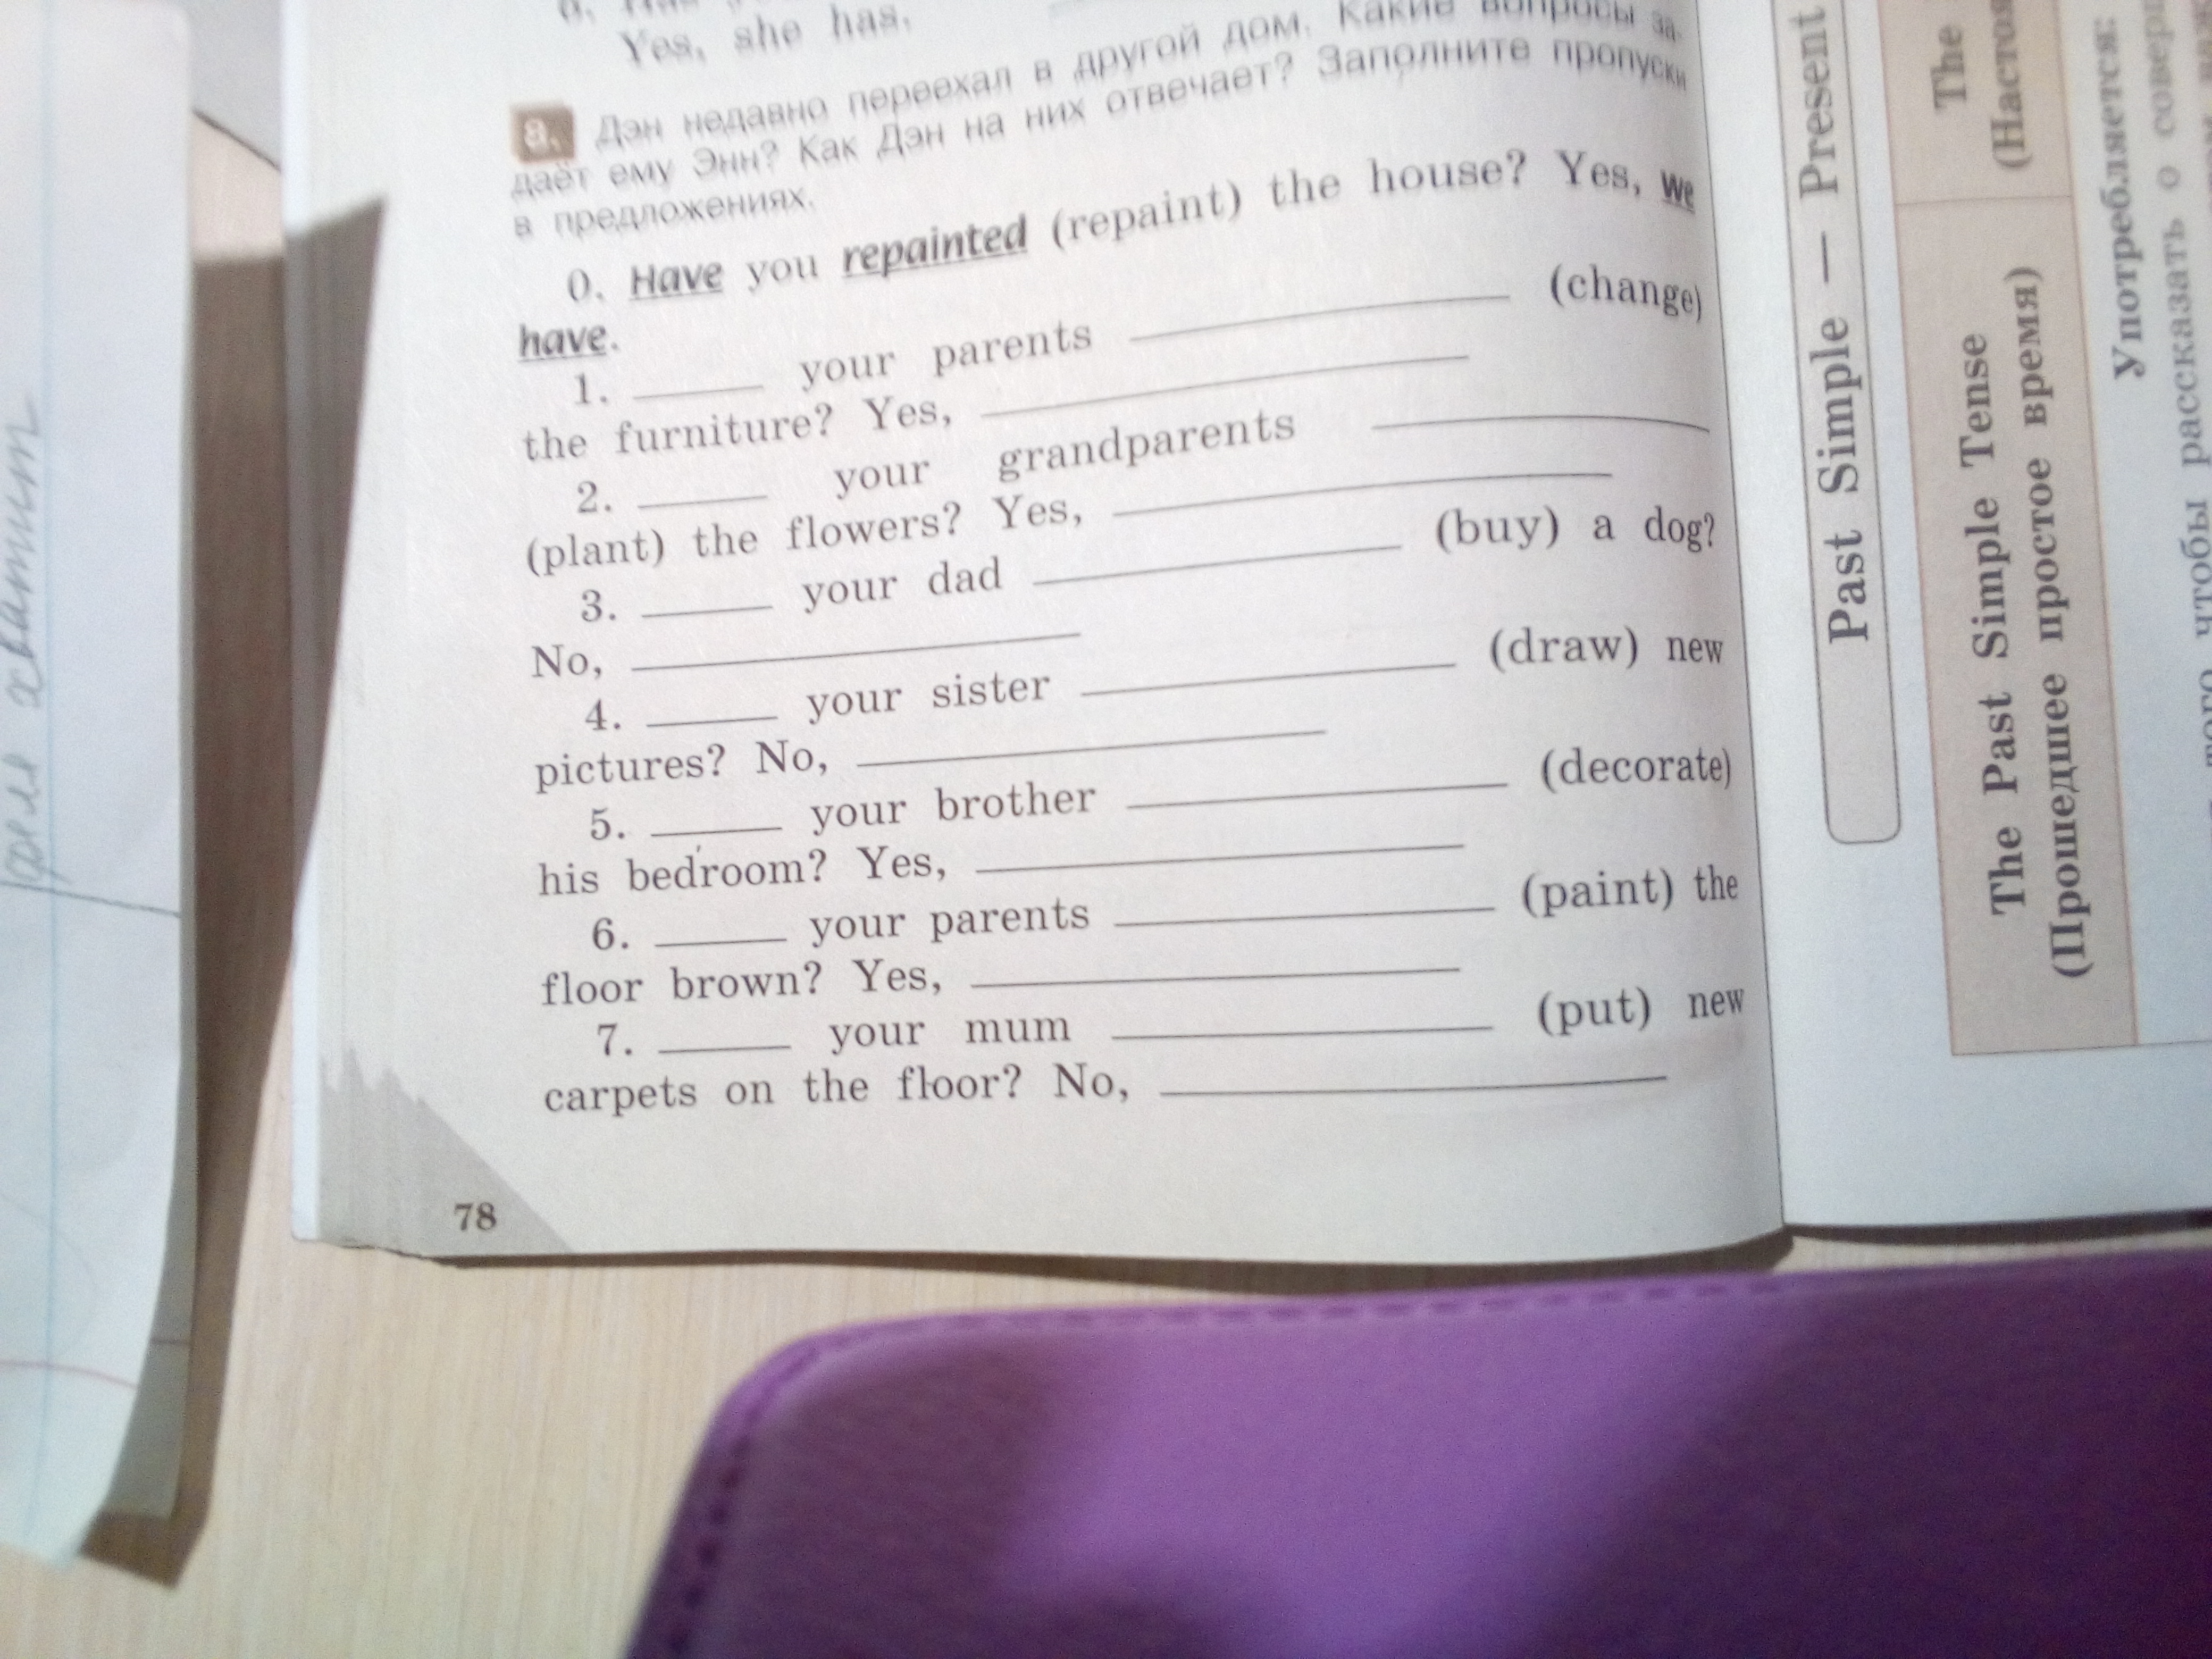 Yes, she has.
a. Дэн недавно переехал в другой дом. Какие вопросы за-
даёт ему Энн? Как Дэн на них отвечает? Заполните пропуски
в предложениях.
0. Have you repainted (repaint) the house? Yes, we
have.
1. _____ your parents _____ (change)
the furniture? Yes, _____
2. _____ your grandparents _____
(plant) the flowers? Yes, _____
3. _____ your dad _____ (buy) a dog?
No, _____
4. _____ your sister _____ (draw) new
pictures? No, _____
5. _____ your brother _____ (decorate)
his bedroom? Yes, _____
6. _____ your parents _____ (paint) the
floor brown? Yes, _____
7. _____ your mum _____ (put) new
carpets on the floor? No, _____
78
Past Simple — Present
The Past Simple Tense
(Прошедшее простое время)
The
Употребляется:
чтобы рассказать о